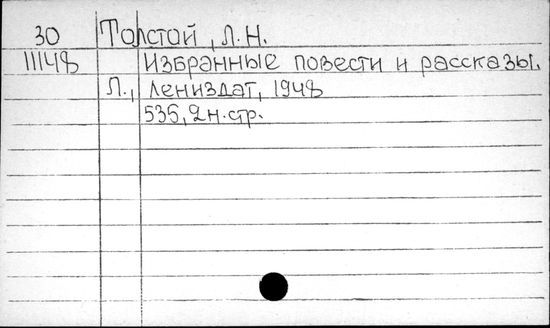 30 Толстой, Л.Н.
11148 Избранные повести и рассказы.
Л., Лениздат, 1948
535, 2н.стр.